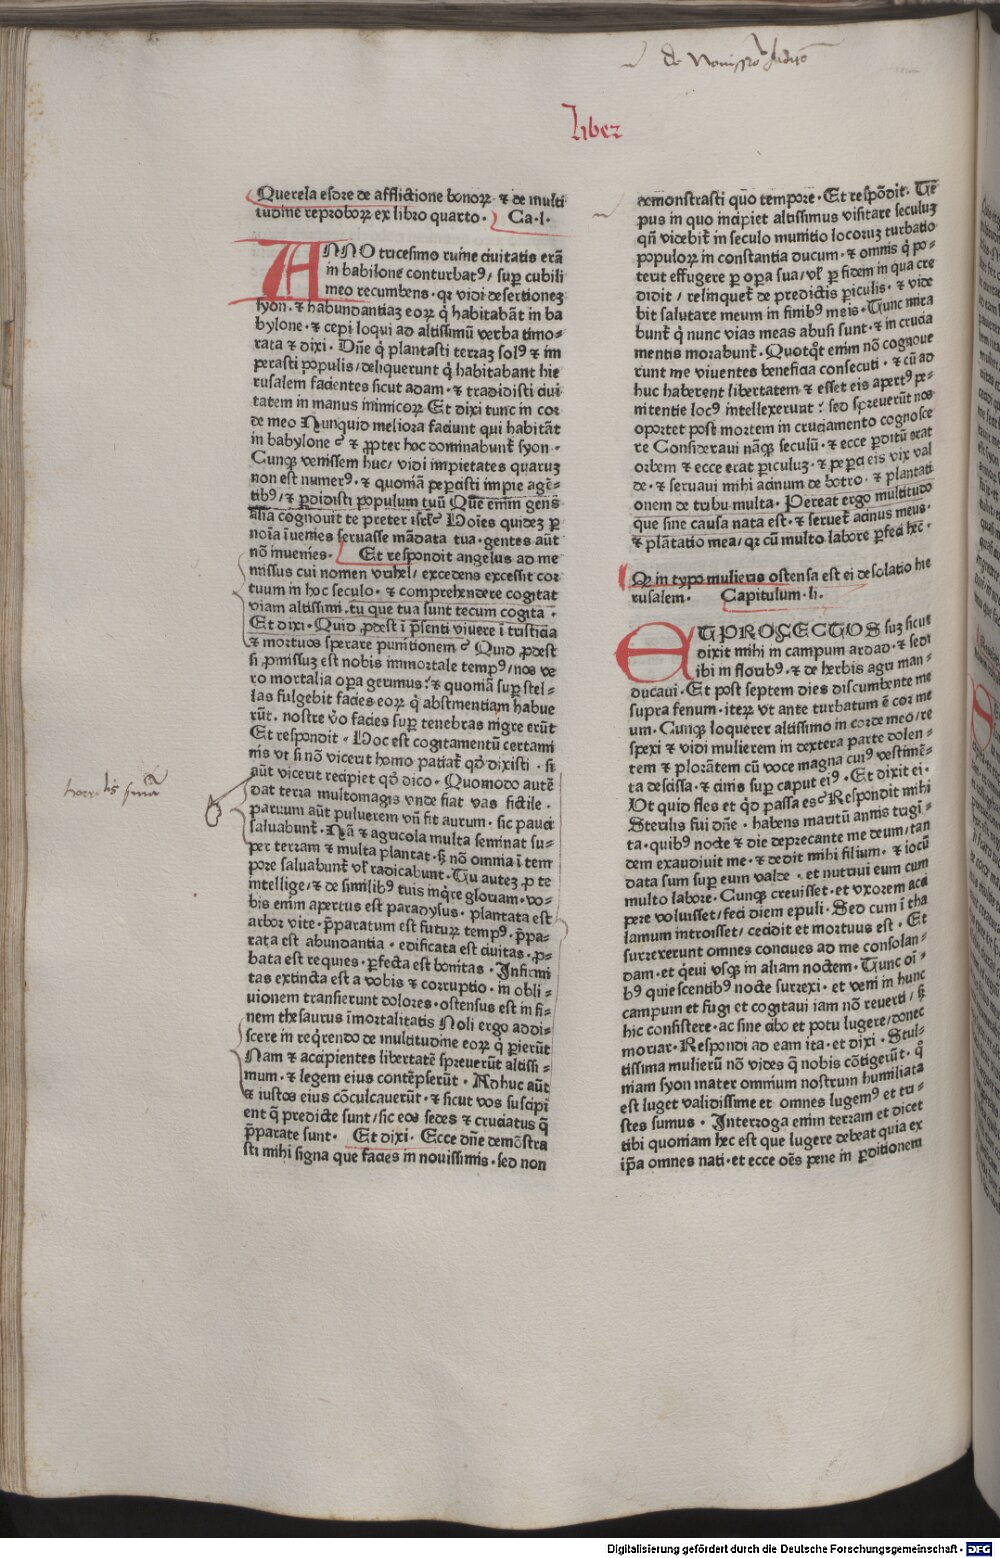 de
liber
Querela esdre de afflictione bonoꝝ ⁊ de multi
tudine reproboꝝ ex libro quarto· Ca·l·
ANNO tricesimo ruine ciuitatis erā
in babilone conturbatꝰ/ suꝑ cubili
meo recumbens· qꝛ vidi desertioneꝫ
syon· ⁊ habundantiaꝫ eoꝝ q̇ habitabāt in ba
bylone· ⁊ cepi loqui ad altissimū verba timo⸗
rata ⁊ dixi· Dn̄e q̇ plantasti terraꝫ solꝰ ⁊ im
perasti populis/deliquerunt q̇ habitabant hie
rusalem facientes sicut adam· ⁊ tradidisti ciui
tatem in manus inimicoꝝ Et dixi tunc in cor
de meo Nunquid meliora faciunt qui habitāt
in babylone ? ⁊ ꝓpter hoc dominabunt̄ syon·
Cunqꝫ venissem huc/ vidi impietates quaruꝫ
non est numerꝰ· ⁊ quoniā peꝑcisti impie agē⸗
tibꝰ/ ⁊ ꝑdidisti populum tuū Que enim gens
alia cognouit te preter isrl̄? Hoīes quideꝫ ꝑ
noīa īuenies seruasse mādata tua· gentes aūt
nō inuenies· Et respondit angelus ad me
missus cui nomen vrihel/ excedens excessit cor
tuum in hoc seculo· ⁊ comprehendere cogitat
viam altissimi· tu que tua sunt tecum cogita·
Et dixi· Quid ꝓdest ī p̄senti viuere ī tristicia
⁊ mortuos sperare punitionem ? Quid ꝓdest
si ꝓmissuꝫ est nobis immortale tempꝰ/nos ve
ro mortalia oꝑa gerimus? ⁊ quoniā suꝑ stel⸗
las fulgebit facies eoꝝ q̇ abstinentiam habue
rūt· nostre v̇o facies suꝑ tenebras nigre erūt
Et respondit· Hoc est cogitamentū certami
nis vt si nō vicerit homo patiat̄ qd̄ dixisti· si
aūt vicerit recipiet qd̄ dico· Quomodo autē
dat terra multomagis vnde fiat vas fictile·
paruum aūt puluerem vn̄ fit aurum· sic pauci
saluabunt̄· Nā ⁊ agricola multa seminat su⸗
per terram ⁊ multa plantat· sꝫ nō omnia ī tem
pore saluabunt̄ vl̄ radicabunt· Tu auteꝫ ꝓ te
intellige/⁊ de similibꝰ tuis inq̇re gloriam· vo⸗
bis enim apertus est paradysus· plantata est
arbor vite· p̄paratum est futuꝝ tempꝰ· p̄pa⸗
rata est abundantia· edificata est ciuitas· ꝓ⸗
bata est requies· ꝑfecta est bonitas· Infirmi
tas extincta est a vobis ⁊ corruptio· in obli⸗
uionem transierunt dolores· ostensus est in fi⸗
nem thesaurus īmortalitatis Noli ergo addi⸗
scere in req̇rendo de multitudine eoꝝ q̇ ꝑierūt
Nam ⁊ accipientes libertatē spreuerūt altissi⸗
mum· ⁊ legem eius contēpserūt· Adhuc aūt
⁊ iustos eius cōculcauerūt· ⁊ sicut vos suscipi
ent q̄ predicte sunt/ sic eos sedes ⁊ cruciatus q̄
p̄parate sunt· Et dixi· Ecce dn̄e demōstra
sti mihi signa que facies in nouissimis· sed non
demonstrasti quo tempore· Et respōdit· Tē
pus in quo incipiet altissimus visitare seculuꝫ
qn̄ videbit̄ in seculo munitio locoruꝫ turbatio
populoꝝ in constantia ducum· ⁊ omnis q̇ po⸗
terit effugere ꝑ oꝑa sua/ vl̄ ꝑ fidem in qua cre
didit / relinquet̄ de predictis ꝑiculis· ⁊ vide
bit salutare meum in finibꝰ meis· Tunc mira
bunt̄ q̇ nunc vias meas abusi sunt· ⁊ in crucia
mentis morabunt̄· Quotqt̄ enim nō cognoue
runt me viuentes beneficia consecuti· ⁊ cū ad
huc haberent libertatem ⁊ esset eis apertꝰ pe⸗
nitentie locꝰ intellexerunt ? sed spreuerūt nos
oportet post mortem in cruciamento cognosce
re Consideraui nāqꝫ seculū· ⁊ ecce ꝑditū erat
orbem ⁊ ecce erat ꝑiculuꝫ· ⁊ peꝑci eis vix val
de· ⁊ seruaui mihi acinum de botro· ⁊ plantati
onem de tribu multa· Pereat ergo multitudo
que sine causa nata est· ⁊ seruet̄ acinus meus·
⁊ plātatio mea/ qꝛ cū multo labore ꝑfeci hec·
Qꝙ in typo mulieris ostensa est ei desolatio hie
rusalem· Capitulum·li·
ET PROFECTUS suꝫ sicut
dixit mihi in campum ardad· ⁊ sedi
ibi in floribꝰ· ⁊ de herbis agri man⸗
ducaui· Et post septem dies discumbente me
supra fenum· iteꝝ vt ante turbatum ē cor me
um· Cunqꝫ loquerer altissimo in corde meo/re
spexi ⁊ vidi mulierem in dextera parte dolen⸗
tem ⁊ plorātem cū voce magna cuiꝰ vestimē⸗
ta descissa· ⁊ cinis suꝑ caput eiꝰ· Et dixit ei·
Vt quid fles et qd̄ passa es? Respondit mihi
Sterilis fui dn̄e· habens maritū annis trigī⸗
ta· quibꝰ nocte ⁊ die deprecante me deum/tan
dem exaudiuit me· ⁊ dedit mihi filium· ⁊ iocū
data sum suꝑ eum valde· et nutriui eum cum
multo labore· Cunqꝫ creuisset· et vxorem acci
pere voluisset/ feci diem epuli· Sed cum ī tha
lamum introisset/ cecidit et mortuus est· Et
surrexerunt omnes conciues ad me consolan⸗
dam· et q̇eui vsqꝫ in aliam noctem· Tunc oī⸗
bꝰ quiescentibꝰ nocte surrexi· et veni in hunc
campum et fugi et cogitaui iam nō reuerti/ sꝫ
hic consistere· ac sine cibo et potu lugere/donec
moriar· Respondi ad eam ita· et dixi· Stul⸗
tissima mulierū nō vides q̄ nobis cōtigerūt· qꝰ
niam syon mater omnium nostrum humiliata
est luget validissime et omnes lugemꝰ et tri⸗
stes sumus· Interroga enim terram et dicet
tibi quoniam hec est que lugere debeat quia ex
ip̄a omnes nati· et ecce oēs pene in ꝑditionem
Digitalisierung gefördert durch die Deutsche Forschungsgemeinschaft · DFG